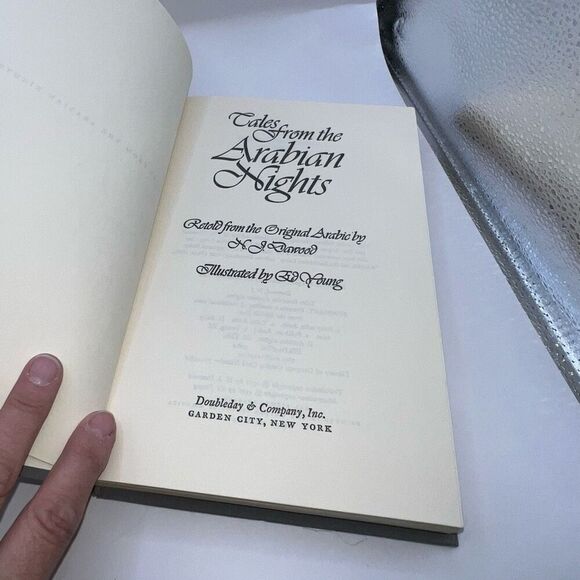 Tales
from the
Arabian
Nights
Retold from the Original Arabic by
N. J. Dawood
Illustrated by Ed Young
Doubleday & Company, Inc.
GARDEN CITY, NEW YORK